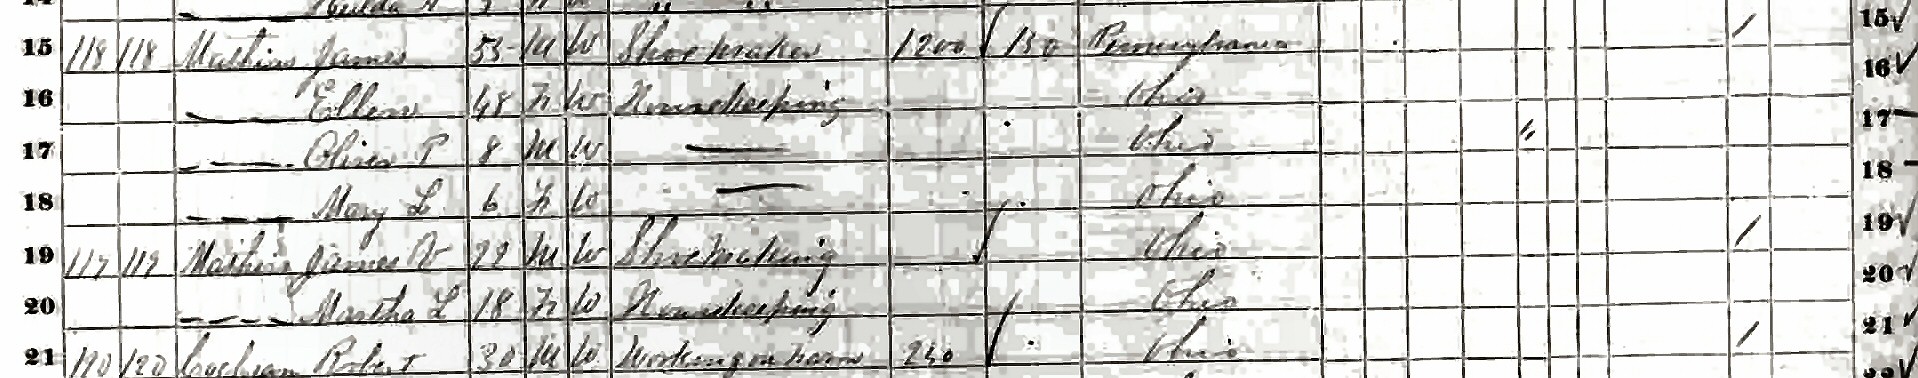 15 118 118 Mathias James 55 M W Shoe maker 1200 150 Pennsylvania 15
16 Ellen 48 F W Housekeeping Ohio 16
17 Oliver P 8 M W Ohio 17
18 Mary L 6 F W Ohio 18
19 119 119 Mathias James W 22 M W Shoemaking Ohio 19
20 Martha L 18 F W Housekeeping Ohio 20
21 120 120 Cochran Robert 30 M W Working on Farm 240 Ohio 21